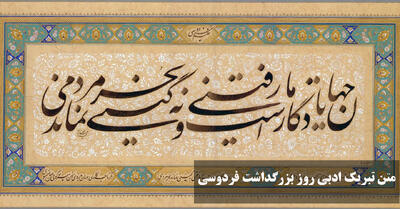 جهان یادگارست و ما رفتنی
به گیتی نماند بجز مردمی
متن تبریک ادبی روز بزرگداشت فردوسی